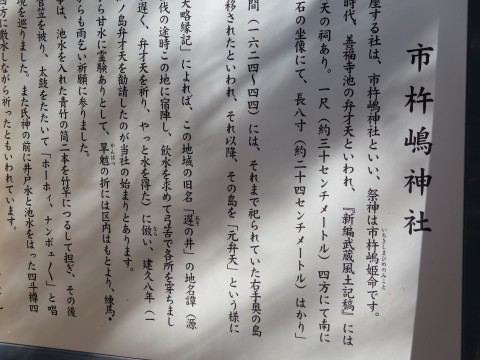 市杵嶋神社
座する社は、市杵嶋神社といい、祭神は市杵嶋姫命です。
いちきしまひめのみこと
時代、善福寺池の弁才天といわれ、『新編武蔵風土記稿』には
天の祠あり。一尺（約三十センチメートル）四方にて南に
石の坐像にて、長八寸（約二十四センチメートル）はかり」
間（一六二四〜四四）には、それまで祀られていた右手奥の島
移されたといわれ、それ以降、その島を「元弁天」という様に
天略縁記」によれば、この地域の旧名「遅の井」の地名譚（源
おそ
伐の途時この地に宿陣し、飲水を求めて弓筈で各所を穿ちまし
遅く、弁才天を祈り、やっと水を得た）に倣い、建久八年（一
なら
ノ島弁才天を勧請したのが当社の始まりとあります。
ら甘水に霊験ありとして、旱魃の折には区内はもとより、練馬・
かんばつ
らも雨乞い祈願に参りました。
は、池水を入れた青竹の筒二本を竹竿につるして担ぎ、その後
菅笠を被り、太鼓をたたいて「ホーホイ、ナンボェ〳〵」と唱
境を巡りました。また氏神の前に井戸水と池水をはった四斗樽四
四方に散水しながら祈ったともいわれています。